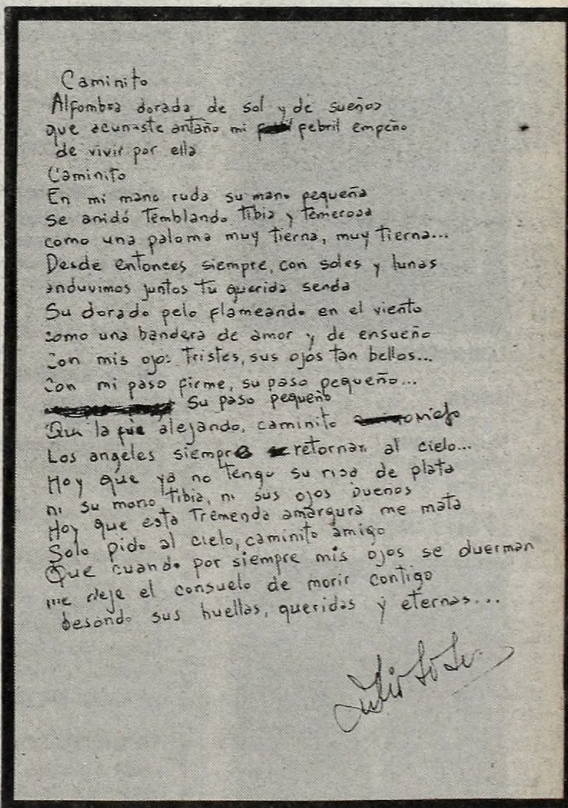 Caminito
Alfombra dorada de sol y de sueños
que acunaste antaño mi febril empeño
de vivir por ella
Caminito
En mi mano ruda su mano pequeña
Se anidó Temblando Tibia y Temerosa
como una paloma muy Tierna, muy Tierna...
Desde entonces siempre, con soles y lunas
anduvimos juntos Tu querida senda
Su dorado pelo flameando en el viento
Como una bandera de amor y de ensueño
Con mis ojos Tristes, sus ojos tan bellos...
Con mi paso firme, su paso pequeño...
Su paso pequeño
Que la fue alejando, caminito
Los angeles siempre retornan al cielo...
Hoy que ya no Tengo su risa de plata
ni su mano Tibia, ni sus ojos buenos
Hoy que esta Tremenda amargura me mata
Solo pido al cielo, caminito amigo
Que cuando por siempre mis ojos se duerman
me deje el consuelo de morir contigo
besando sus huellas, queridas y eternas...
Julio Sosa